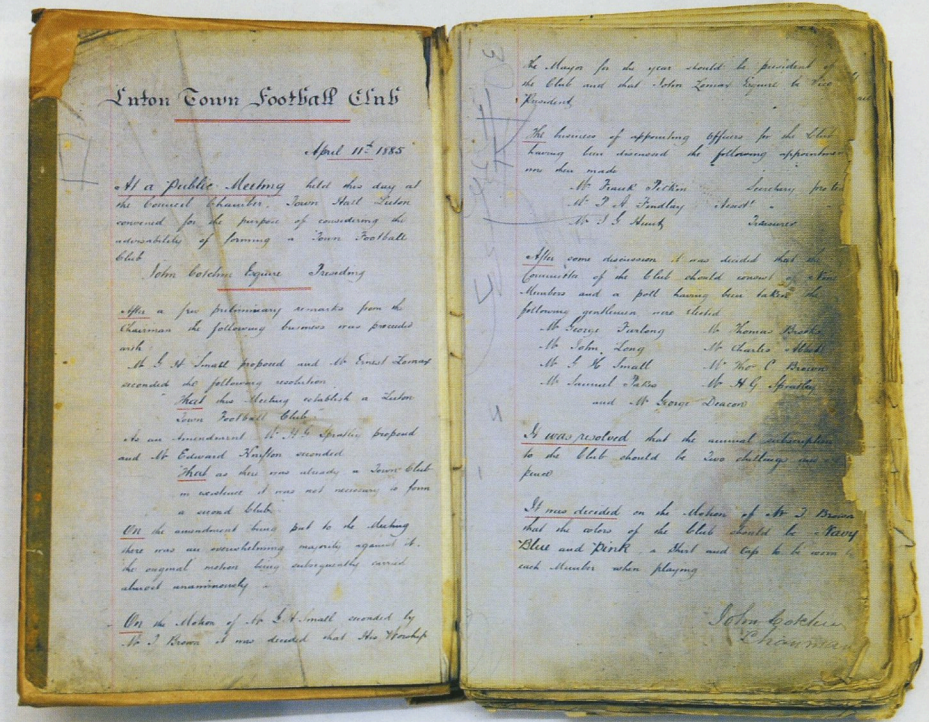 Luton Town Football Club
April 11th 1885
At a Public Meeting held this day at
the Council Chamber, Town Hall Luton
convened for the purpose of considering the
advisability of forming a Town Football
Club
John Cotchin Esquire Presiding
After a few preliminary remarks from the
Chairman the following business was proceeded
with
Mr G. H. Small proposed and Mr Ernest Lomax
seconded the following resolution
That this Meeting establish a Luton
Town Football Club.
As an Amendment Mr H. G. Spratley proposed
and Mr Edward seconded
That as there was already a Town Club
in existence it was not necessary to form
a second Club.
On the amendment being put to the Meeting
there was an overwhelming majority against it.
the original motion being subsequently carried
almost unanimously
On the Motion of Mr G. H. Small seconded by
Mr T. Brown it was decided that His Worship
the Mayor for the year should be president of
the Club and that John Lomax Esquire be Vice
President
The business of appointing Officers for the Club
having been discussed the following
were then made
Mr Frank Secretary
Mr P. A. Findlay Assist "
Mr I G Hunt Treasurer
After some discussion it was decided that the
Committee of the Club should consist of Nine
Members and a poll having been taken the
following gentlemen were elected
Mr George Furlong Mr Thomas Brooks
Mr John Long Mr Charles
Mr G H Small Mr Thos C Brown
Mr Samuel Mr H G Spratley
and Mr George Deacon
It was resolved that the annual subscription
to the Club should be Two shillings and
pence
It was decided on the Motion of Mr T Brown
that the colors of the Club should be Navy
Blue and Pink, a Shirt and Cap to be worn by
each Member when playing
John Cotchin
Chairman